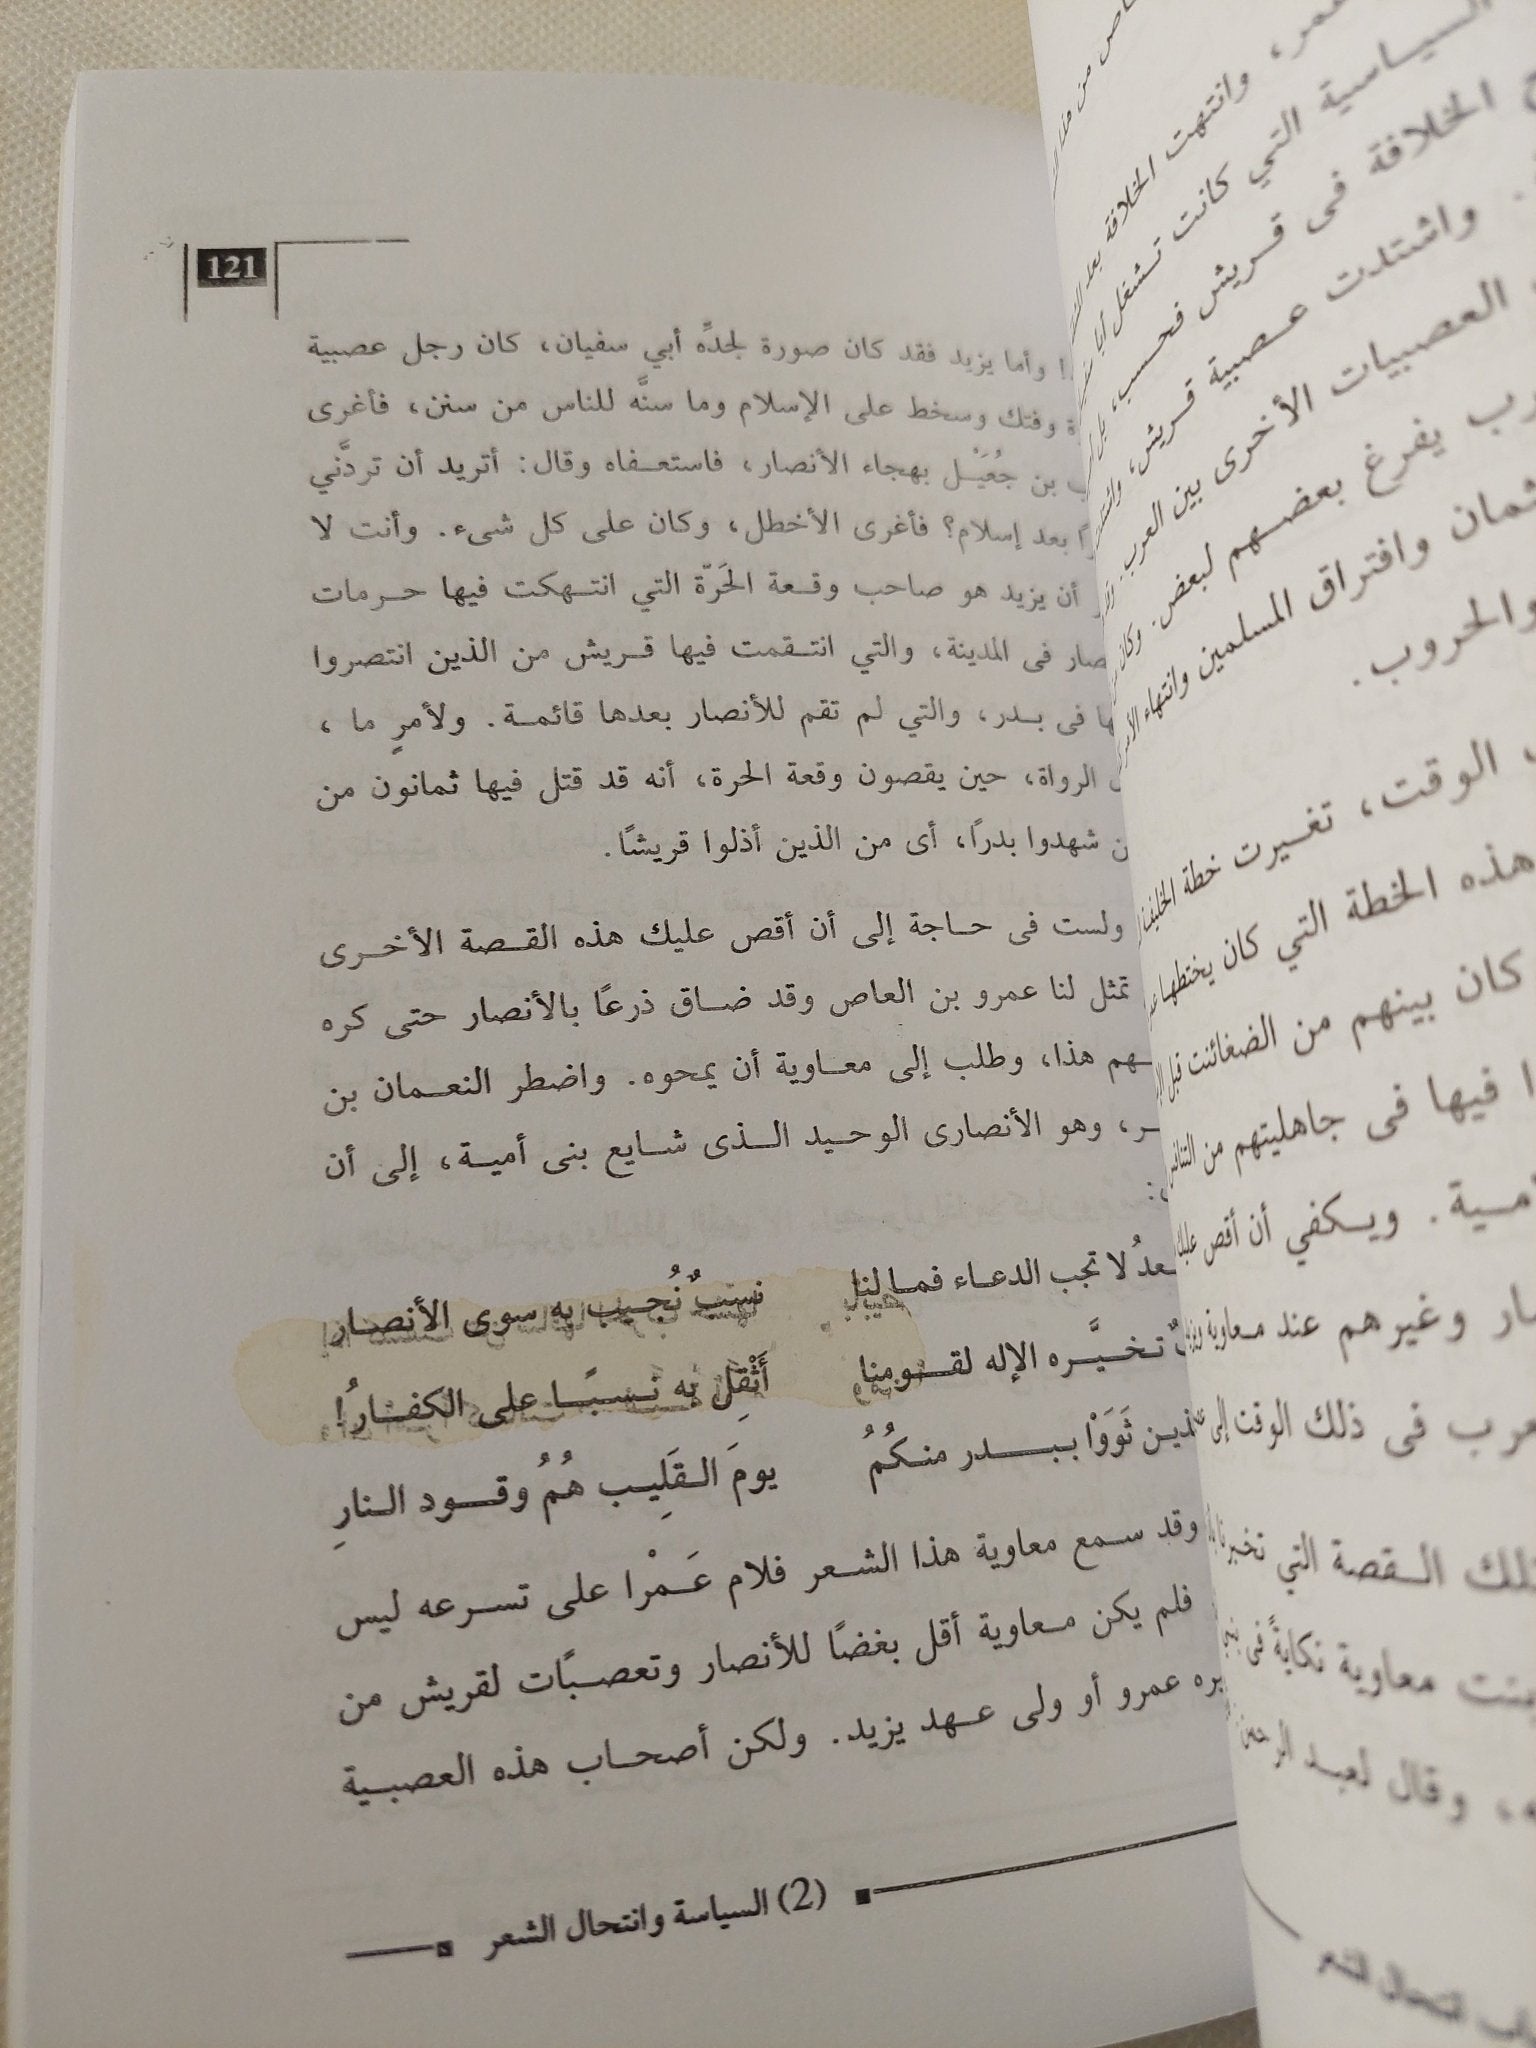 121
وأما يزيد فقد كان صورة لجدِّه أبي سفيان، كان رجل عصبية
وفتك وسخط على الإسلام وما سنَّه للناس من سنن، فأغرى
بن جُعَيْل بهجاء الأنصار، فاستعفاه وقال: أتريد أن تردَّني
بعد إسلام؟ فأغرى الأخطل، وكان على كل شىء. وأنت لا
أن يزيد هو صاحب وقعة الحَرّة التي انتهكت فيها حرمات
فى المدينة، والتي انتقمت فيها قريش من الذين انتصروا
فى بدر، والتي لم تقم للأنصار بعدها قائمة. ولأمرٍ ما ،
الرواة، حين يقصون وقعة الحرة، أنه قد قتل فيها ثمانون من
شهدوا بدرًا، أى من الذين أذلوا قريشًا.
ولست فى حاجة إلى أن أقص عليك هذه القصة الأخرى
تمثل لنا عمرو بن العاص وقد ضاق ذرعًا بالأنصار حتى كره
هذا، وطلب إلى معاوية أن يمحوه. واضطر النعمان بن
وهو الأنصارى الوحيد الذى شايع بنى أمية، إلى أن
لا تجب الدعاء فما لنا نسبٌ نُجيب به سوى الأنصار
تخيَّره الإله لقومنا أَثْقِل به نسبًا على الكفارُ!
ثَوَوْا ببدر منكُمُ يومَ القَلِيب هُمُ وقود النارِ
وقد سمع معاوية هذا الشعر فلام عَمْرا على تسرعه ليس
فلم يكن معاوية أقل بغضًا للأنصار وتعصبًات لقريش من
عمرو أو ولى عهد يزيد. ولكن أصحاب هذه العصبية
(2) السياسة وانتحال الشعر
وانتهت الخلافة بعد
السياسية التي كانت تشغل
الخلافة فى قريش فحسب، بل
واشتدت عصبية قريش،
العصبيات الأخرى بين العرب.
يفرغ بعضهم لبعض. وكان
وافتراق المسلمين وانتهاء
والحروب.
الوقت، تغيرت خطة
هذه الخطة التي كان يختطها
كان بينهم من الضغائنت قبل
فيها فى جاهليتهم من
ويكفي أن أقص عليك
وغيرهم عند معاوية
فى ذلك الوقت إلى
القصة التي تخبرنا
معاوية نكايةً فى
وقال لعبد الرحمن